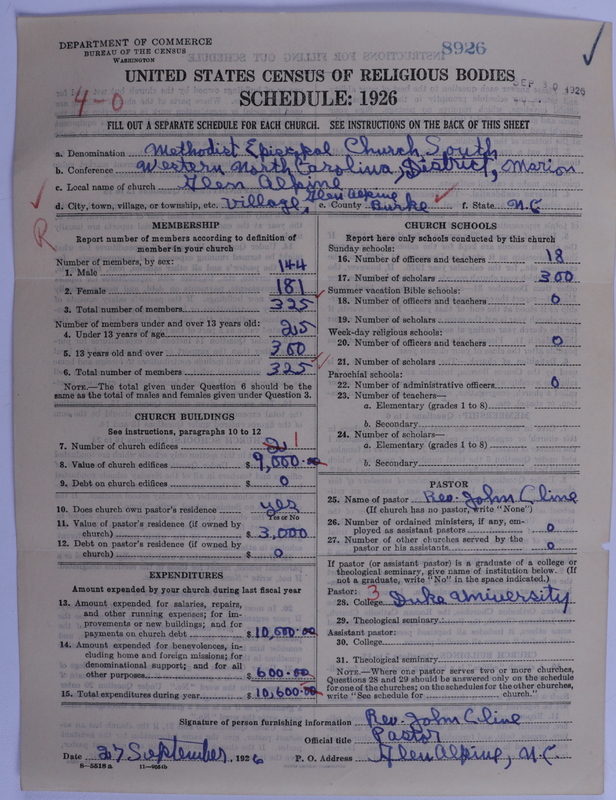 DEPARTMENT OF COMMERCE
BUREAU OF THE CENSUS
WASHINGTON
8926
SEP 30 1926
UNITED STATES CENSUS OF RELIGIOUS BODIES
SCHEDULE: 1926
4-0
FILL OUT A SEPARATE SCHEDULE FOR EACH CHURCH. SEE INSTRUCTIONS ON THE BACK OF THIS SHEET
a. Denomination Methodist Episcopal Church South
b. Conference Western North Carolina, District, Marion
c. Local name of church Glen Alpine
d. City, town, village, or township, etc. Village, Glen Alpine e. County Burke f. State N.C
R
MEMBERSHIP
Report number of members according to definition of member in your church
Number of members, by sex:
1. Male 144
2. Female 181
3. Total number of members 325
Number of members under and over 13 years old:
4. Under 13 years of age 25
5. 13 years old and over 300
6. Total number of members 325
NOTE.—The total given under Question 6 should be the same as the total of males and females given under Question 3.
CHURCH BUILDINGS
See instructions, paragraphs 10 to 12
7. Number of church edifices 2 1
8. Value of church edifices $ 9,000.00
9. Debt on church edifices $ 0
10. Does church own pastor's residence yes
Yes or No
11. Value of pastor's residence (if owned by church) $ 3,000
12. Debt on pastor's residence (if owned by church) $ 0
EXPENDITURES
Amount expended by your church during last fiscal year
13. Amount expended for salaries, repairs, and other running expenses; for improvements or new buildings; and for payments on church debt $ 10,000.00
14. Amount expended for benevolences, including home and foreign missions; for denominational support; and for all other purposes $ 600.00
15. Total expenditures during year $ 10,600.00
CHURCH SCHOOLS
Report here only schools conducted by this church
Sunday schools:
16. Number of officers and teachers 18
17. Number of scholars 300
Summer vacation Bible schools:
18. Number of officers and teachers 0
19. Number of scholars
Week-day religious schools:
20. Number of officers and teachers 0
21. Number of scholars
Parochial schools:
22. Number of administrative officers 0
23. Number of teachers—
a. Elementary (grades 1 to 8)
b. Secondary
24. Number of scholars—
a. Elementary (grades 1 to 8)
b. Secondary
PASTOR
25. Name of pastor Rev. John Cline
(If church has no pastor, write "None")
26. Number of ordained ministers, if any, employed as assistant pastors 0
27. Number of other churches served by the pastor or his assistants 0
If pastor (or assistant pastor) is a graduate of a college or theological seminary, give name of institution below. (If not a graduate, write "No" in the space indicated.)
Pastor: 3
28. College Duke University
29. Theological seminary
Assistant pastor:
30. College
31. Theological seminary
NOTE.—Where one pastor serves two or more churches, Questions 28 and 29 should be answered only on the schedule for one of the churches; on the schedules for the other churches, write "See schedule for church."
Signature of person furnishing information Rev. John Cline
Official title Pastor
Date 27 September, 1926 P. O. Address Glen Alpine, N.C.
8-5518a 11-9884b